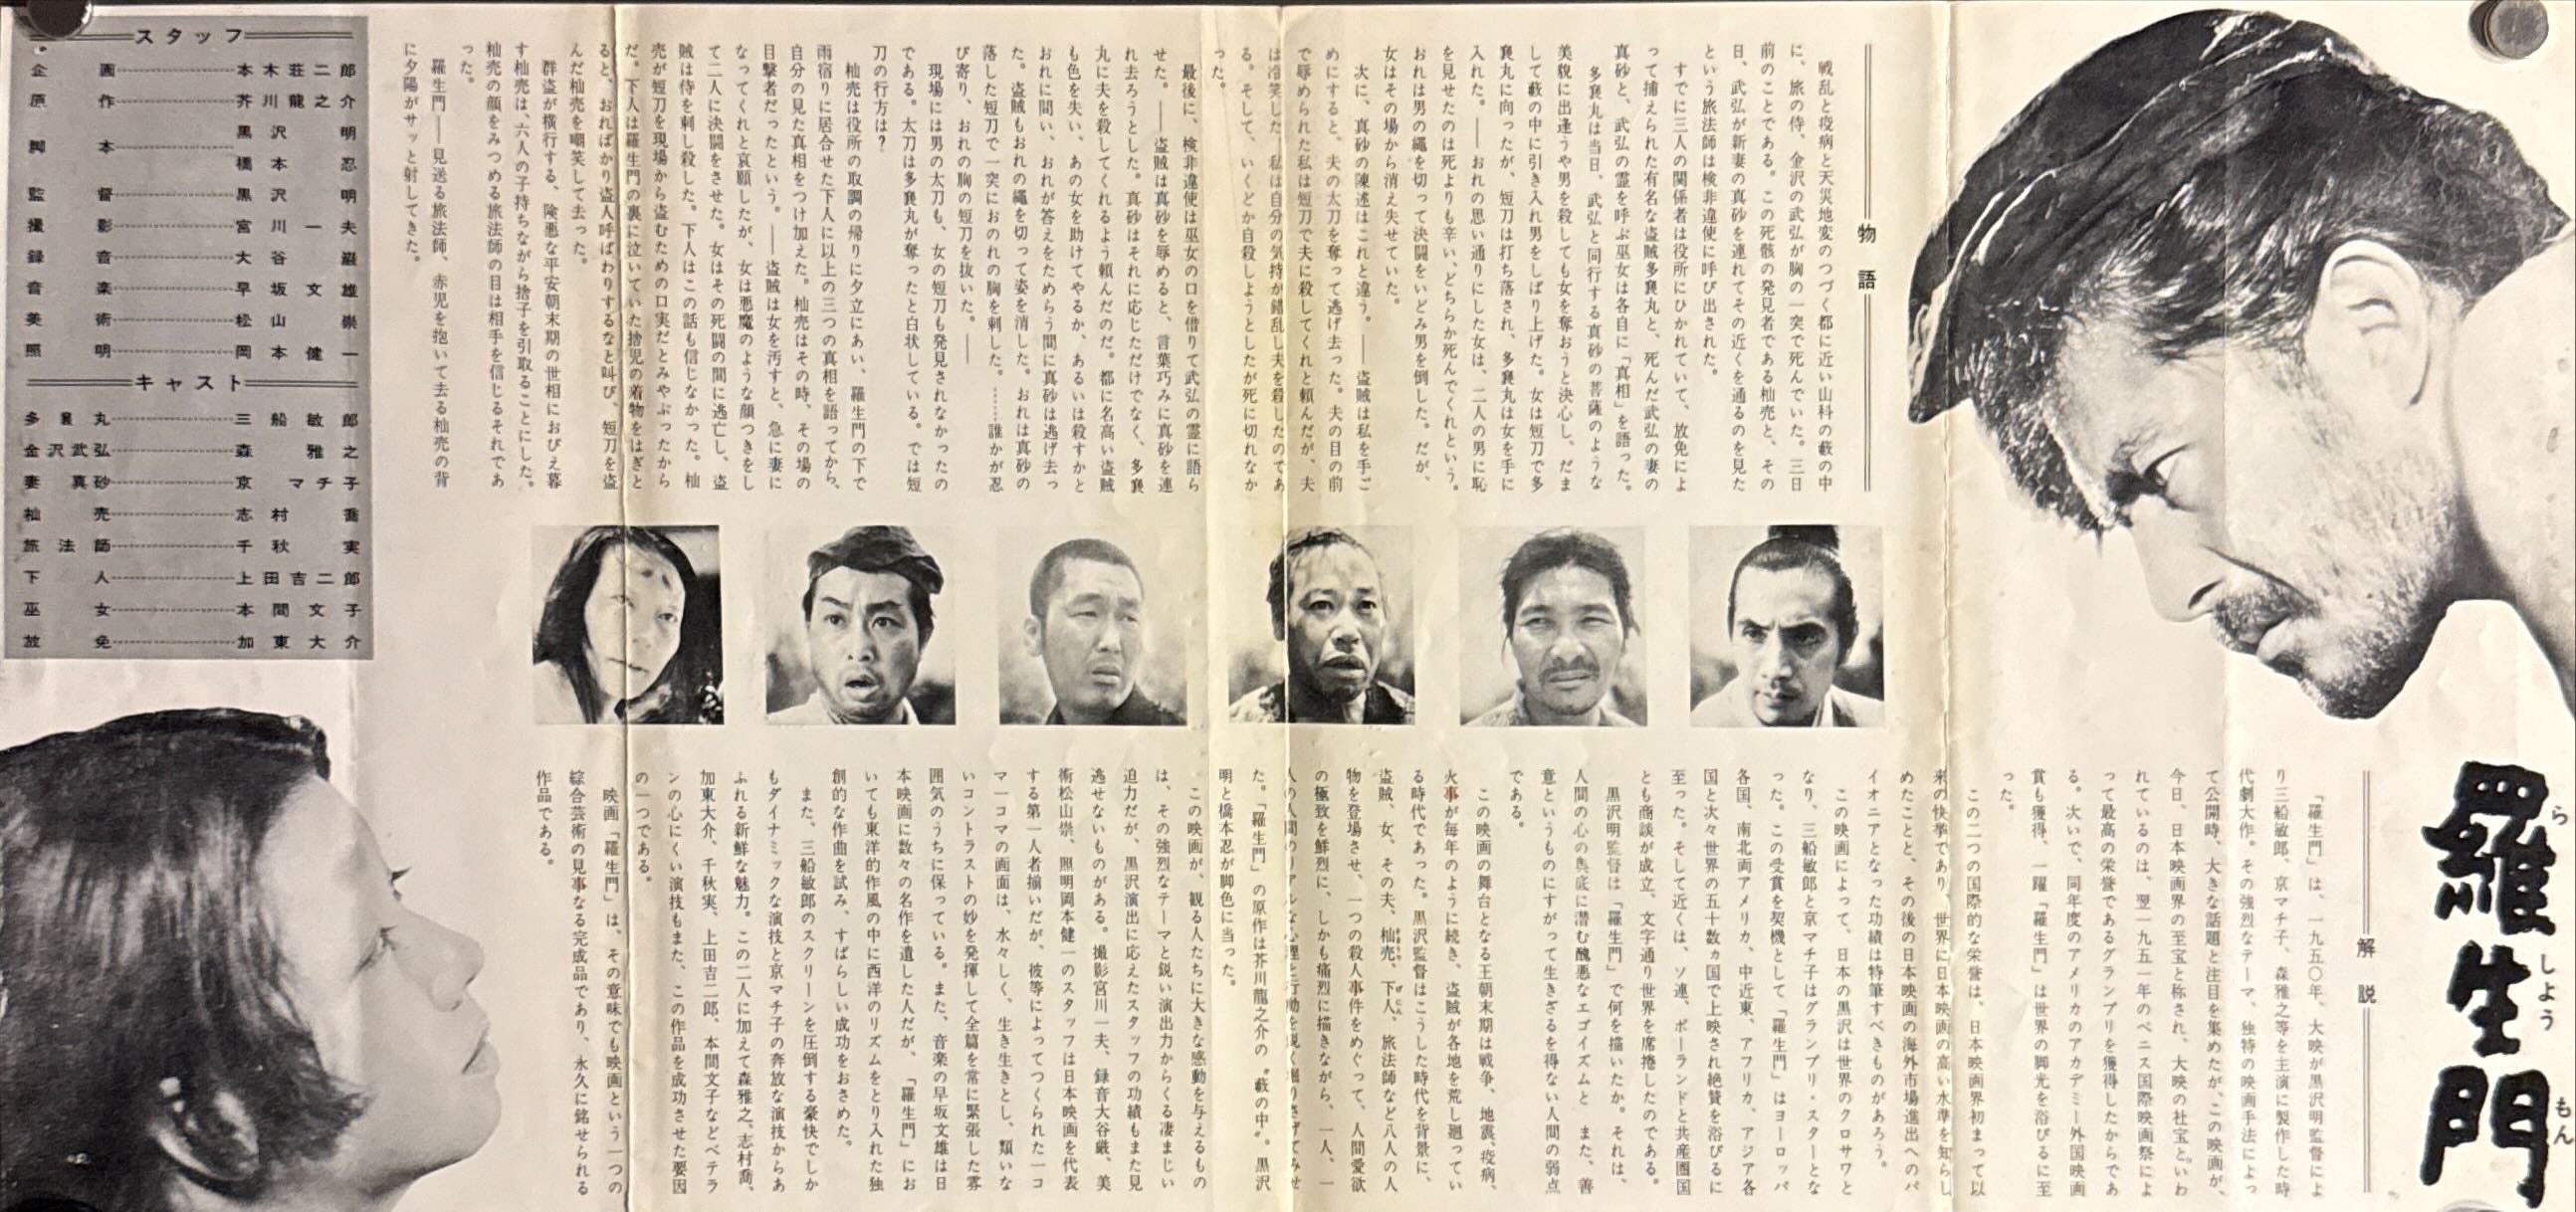 羅生門
らしようもん
解説
「羅生門」は、一九五〇年、大映が黒沢明監督によ
り三船敏郎、京マチ子、森雅之等を主演に製作した時
代劇大作。その強烈なテーマ、独特の映画手法によっ
て公開時、大きな話題と注目を集めたが、この映画が、
今日、日本映画界の至宝と称され、大映の社宝といわ
れているのは、翌一九五一年のベニス国際映画祭によ
って最高の栄誉であるグランプリを獲得したからであ
る。次いで、同年度のアメリカのアカデミー外国映画
賞も獲得、一躍「羅生門」は世界の脚光を浴びるに至
った。
この二つの国際的な栄誉は、日本映画界初まって以
来の快挙であり、世界に日本映画の高い水準を知らし
めたことと、その後の日本映画の海外市場進出へのパ
イオニアとなった功績は特筆すべきものがあろう。
この映画によって、日本の黒沢は世界のクロサワと
なり、三船敏郎と京マチ子はグランプリ・スターとな
った。この受賞を契機として「羅生門」はヨーロッパ
各国、南北両アメリカ、中近東、アフリカ、アジア各
国と次々世界の五十数ヵ国で上映され絶賛を浴びるに
至った。そして近くは、ソ連、ポーランドと共産圏国
とも商談が成立、文字通り世界を席捲したのである。
黒沢明監督は「羅生門」で何を描いたか。それは、
人間の心の奥底に潜む醜悪なエゴイズムと また、善
意というものにすがって生きざるを得ない人間の弱点
である。
この映画の舞台となる王朝末期は戦争、地震、疫病、
火事が毎年のように続き、盗賊が各地を荒し廻ってい
る時代であった。黒沢監督はこうした時代を背景に、
盗賊、女、その夫、杣売、下人、旅法師など八人の人
物を登場させ、一つの殺人事件をめぐって、人間愛欲
の極致を鮮烈に、しかも痛烈に描きながら、一人、一
人の人間のリアルな心理と行動を鋭く掘りさげてみせ
た。「羅生門」の原作は芥川龍之介の〝藪の中〟。黒沢
明と橋本忍が脚色に当った。
この映画が、観る人たちに大きな感動を与えるもの
は、その強烈なテーマと鋭い演出力からくる凄まじい
迫力だが、黒沢演出に応えたスタッフの功績もまた見
逃せないものがある。撮影宮川一夫、録音大谷巌、美
術松山崇、照明岡本健一のスタッフは日本映画を代表
する第一人者揃いだが、彼等によってつくられた一コ
マ一コマの画面は、水々しく、生き生きとし、類いな
いコントラストの妙を発揮して全篇を常に緊張した雰
囲気のうちに保っている。また、音楽の早坂文雄は日
本映画に数々の名作を遺した人だが、「羅生門」にお
いても東洋的作風の中に西洋のリズムをとり入れた独
創的な作曲を試み、すばらしい成功をおさめた。
また、三船敏郎のスクリーンを圧倒する豪快でしか
もダイナミックな演技と京マチ子の奔放な演技からあ
ふれる新鮮な魅力。この二人に加えて森雅之、志村喬、
加東大介、千秋実、上田吉二郎、本間文子などベテラ
ンの心にくい演技もまた、この作品を成功させた要因
の一つである。
映画「羅生門」は、その意味でも映画という一つの
綜合芸術の見事なる完成品であり、永久に銘せられる
作品である。
物語
戦乱と疫病と天災地変のつづく都に近い山科の藪の中
に、旅の侍、金沢の武弘が胸の一突で死んでいた。三日
前のことである。この死骸の発見者である杣売と、その
日、武弘が新妻の真砂を連れてその近くを通るのを見た
という旅法師は検非違使に呼び出された。
すでに三人の関係者は役所にひかれていて、放免によ
って捕えられた有名な盗賊多襄丸と、死んだ武弘の妻の
真砂と、武弘の霊を呼ぶ巫女は各自に「真相」を語った。
多襄丸は当日、武弘と同行する真砂の菩薩のような
美貌に出逢うや男を殺しても女を奪おうと決心し、だま
して藪の中に引き入れ男をしばり上げた。女は短刀で多
襄丸に向ったが、短刀は打ち落され、多襄丸は女を手に
入れた。――おれの思い通りにした女は、二人の男に恥
を見せたのは死よりも辛い、どちらか死んでくれという。
おれは男の縄を切って決闘をいどみ男を倒した。だが、
女はその場から消え失せていた。
次に、真砂の陳述はこれと違う。――盗賊は私を手ご
めにすると、夫の太刀を奪って逃げ去った。夫の目の前
で辱められた私は短刀で夫に殺してくれと頼んだが、夫
は冷笑した。私は自分の気持が錯乱し夫を殺したのであ
る。そして、いくどか自殺しようとしたが死に切れなか
った。
最後に、検非違使は巫女の口を借りて武弘の霊に語ら
せた。――盗賊は真砂を辱めると、言葉巧みに真砂を連
れ去ろうとした。真砂はそれに応じただけでなく、多襄
丸に夫を殺してくれるよう頼んだのだ。都に名高い盗賊
も色を失い、あの女を助けてやるか、あるいは殺すかと
おれに問い、おれが答えをためらう間に真砂は逃げ去っ
た。盗賊もおれの縄を切って姿を消した。おれは真砂の
落した短刀で一突におのれの胸を刺した。……誰かが忍
び寄り、おれの胸の短刀を抜いた。――
現場には男の太刀も、女の短刀も発見されなかったの
である。太刀は多襄丸が奪ったと白状している。では短
刀の行方は？
杣売は役所の取調の帰りに夕立にあい、羅生門の下で
雨宿りに居合せた下人に以上の三つの真相を語ってから、
自分の見た真相をつけ加えた。杣売はその時、その場の
目撃者だったという。――盗賊は女を汚すと、急に妻に
なってくれと哀願したが、女は悪魔のような顔つきをし
て二人に決闘をさせた。女はその死闘の間に逃亡し、盗
賊は侍を刺し殺した。下人はこの話も信じなかった。杣
売が短刀を現場から盗むための口実だとみやぶったから
だ。下人は羅生門の裏に泣いていた捨児の着物をはぎと
ると、おればかり盗人呼ばわりするなと叫び、短刀を盗
んだ杣売を嘲笑して去った。
群盗が横行する、険悪な平安朝末期の世相におびえ暮
す杣売は、六人の子持ちながら捨子を引取ることにした。
杣売の顔をみつめる旅法師の目は相手を信じるそれであ
った。
羅生門――見送る旅法師、赤児を抱いて去る杣売の背
に夕陽がサッと射してきた。
スタッフ
企画 本木荘二郎
原作 芥川龍之介
脚本 黒沢明
橋本忍
監督 黒沢明
撮影 宮川一夫
録音 大谷巌
音楽 早坂文雄
美術 松山崇
照明 岡本健一
キャスト
多襄丸 三船敏郎
金沢武弘 森雅之
妻真砂 京マチ子
杣売 志村喬
旅法師 千秋実
下人 上田吉二郎
巫女 本間文子
放免 加東大介